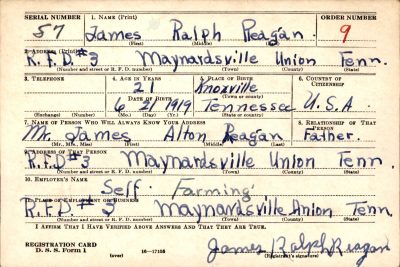 SERIAL NUMBER 1. NAME (Print) ORDER NUMBER
57 James Ralph Reagan 9
(First) (Middle) (Last)
2. ADDRESS (Print)
R.F.D.#3 Maynardsville Union Tenn.
(Number and street or R. F. D. number) (Town) (County) (State)
3. TELEPHONE 4. AGE IN YEARS 5. PLACE OF BIRTH 6. COUNTRY OF CITIZENSHIP
21 Knoxville
DATE OF BIRTH (Town or county)
6 21 1919 Tennessee U.S.A.
(Exchange) (Number) (Mo.) (Day) (Yr.) (State or country)
7. NAME OF PERSON WHO WILL ALWAYS KNOW YOUR ADDRESS 8. RELATIONSHIP OF THAT PERSON
Mr. James Alton Reagan Father.
(Mr., Mrs., Miss) (First) (Middle) (Last)
9. ADDRESS OF THAT PERSON
R.F.D#3 Maynardsville Union Tenn.
(Number and street or R. F. D. number) (Town) (County) (State)
10. EMPLOYER'S NAME
Self. Farming
11. PLACE OF EMPLOYMENT OR BUSINESS
R.F.D.#3 Maynardsville Union Tenn.
(Number and street or R. F. D. number) (Town) (County) (State)
I AFFIRM THAT I HAVE VERIFIED ABOVE ANSWERS AND THAT THEY ARE TRUE.
REGISTRATION CARD
D. S. S. Form 1 (over) 16—17105
James Ralph Reagan